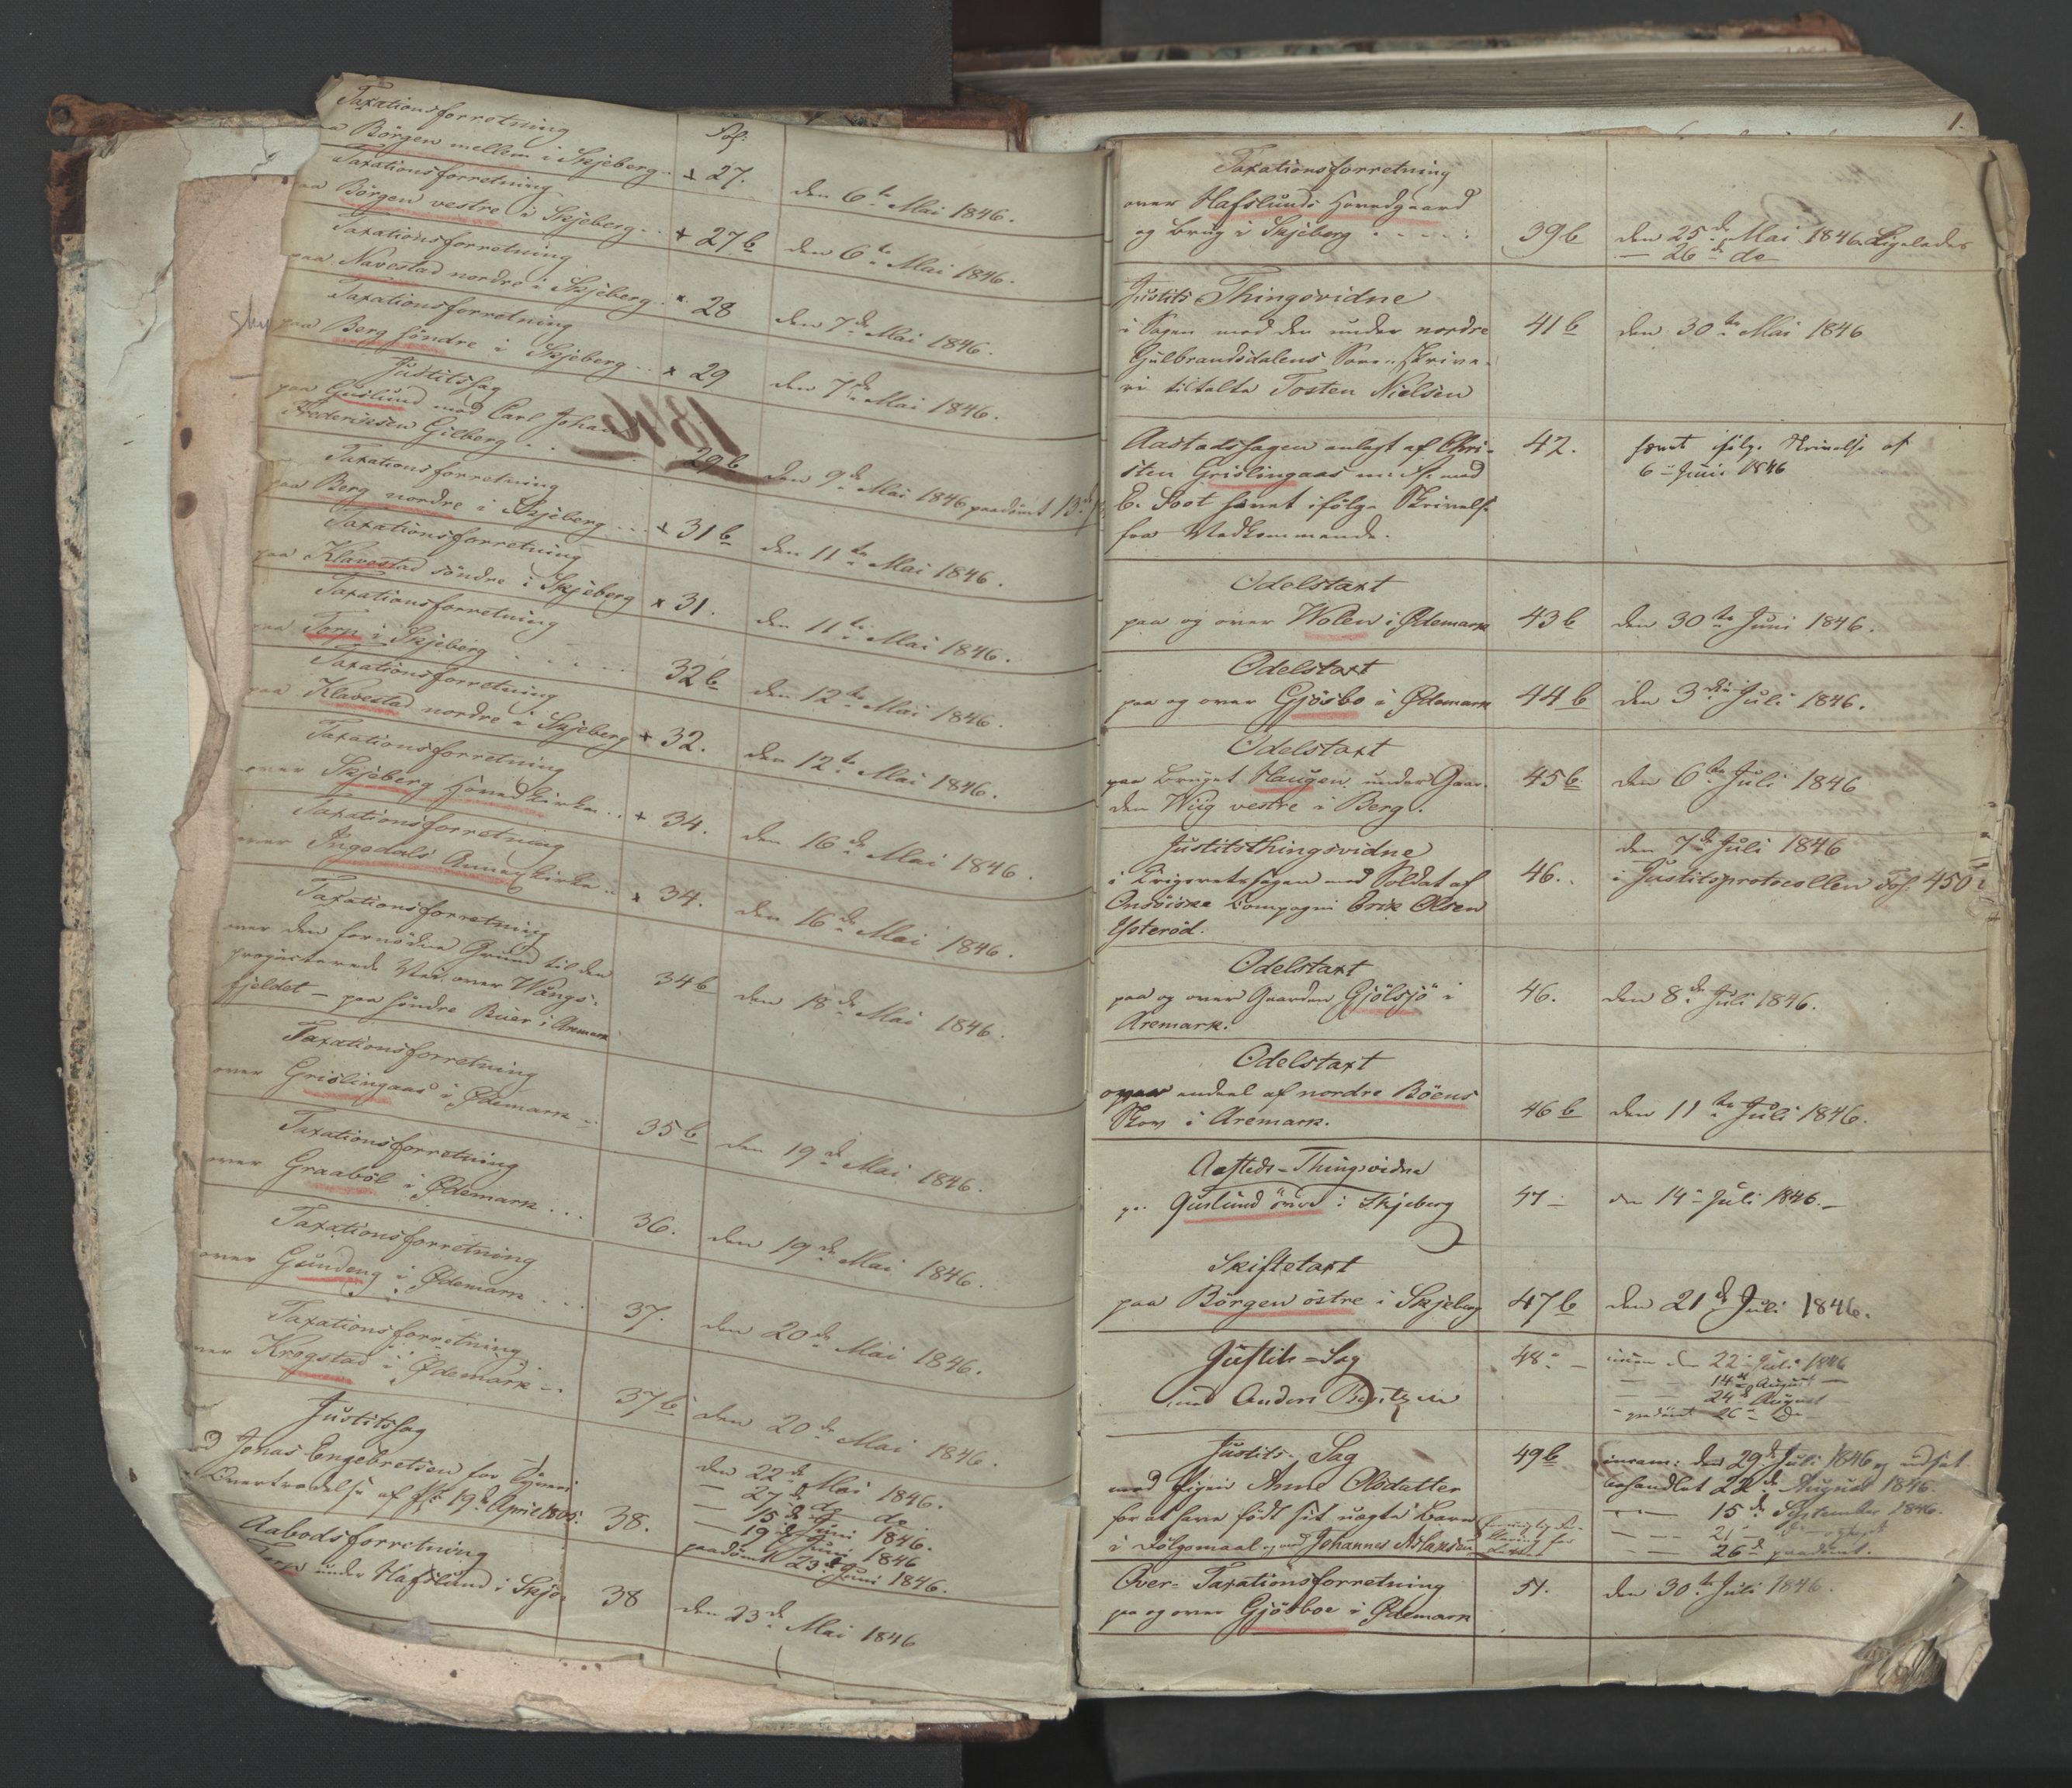 Fol:
Taxationsforretning
paa Börgen mellem i Skjeberg . + 27. den 6te Mai 1846.
Taxationsforretning
paa Börgen vestre i Skjeberg . . + 27b den 6te Mai 1846.
Taxationsforretning
paa Navestad nordre i Skjeberg . x 28 den 7de Mai 1846.
Taxationsforretning
paa Berg söndre i Skjeberg . . x 29 den 7de Mai 1846.
Justitssag
paa Guslund mod Carl Johan
Frederiksen Gilberg . . 29b den 9de Mai 1846 paadömt 13de
1846
Taxationsforretning
paa Berg nordre i Skjeberg . . . + 31b den 11te Mai 1846.
Taxationsforretning
paa Klavestad söndre i Skjeberg x 31. den 11te Mai 1846.
Taxationsforretning
paa Torp i Skjeberg . . . . . 32b den 12te Mai 1846.
Taxationsforretning
paa Klavestad nordre i Skjeberg + 32. den 12te Mai 1846.
Taxationsforretning
over Skjeberg Hovedkirke . . + 34. den 16de Mai 1846.
Taxationsforretning
over Ingedals Annexkirke . . x 34. den 16de Mai 1846.
Taxationsforretning
over den fornödne Grund til den
projecterede Vei over Wångs-
fjeldet – paa söndre Buer i Aremark 34b den 18de Mai 1846.
Taxationsforretning
over Grislingaas i Ødemark . . 35b den 19de Mai 1846.
Taxationsforretning
over Graaböl i Ødemark . . . 36. den 19de Mai 1846.
Taxationsforretning
over Gundeng i Ødemark . . . 37. den 20de Mai 1846.
Taxationsforretning
over Krogstad i Ødemark . . 37b den 20de Mai 1846.
Justitssag
mod Jonas Engebretsen for Tyveri
Overtrædelse af fr. 19de April 1805. 38. den 22de Mai 1846.
— 27de do do.
— 15de Juni 1846.
— 19de Juni 1846
paadömt 23de Juni 1846.
Aabodsforretning
Torp under Hafslund i Skje- 38 den 23de Mai 1846
1.
Taxationsforretning
over Hafslunds Hovedgaard
og Brug i Skjeberg . . . . . 39b den 25de Mai 1846. Ligeledes
— 26de do —
Justits Thingsvidne
i Sagen mod den under nordre 41b den 30te Mai 1846
Gulbrandsdalens Sorenskrive-
ri tiltalte Tosten Nielsen
Aastedssagen anlagt af Chri- 42. hævet ifölge Skrivelse af
sten Grislingaas m. fl. mod 6te Juni 1846
E. Soot hævet ifölge Skrivelse
fra Vedkommende.
Odelstaxt
paa og over Wolen i Ødemark 43b den 30te Juni 1846.
Odelstaxt
paa og over Gjösbo i Ødemark 44b den 3die Juli 1846.
Odelstaxt
paa Bruget Haugen under Gaar- 45b den 6te Juli 1846
den Wiig vestre i Berg.
Justitsthingsvidne den 7de Juli 1846
i Krigsretssagen mod Soldat af 46. i Justitsprotocollen Fol. 450
Onsöiske Compagni Erik Olsen
Ysteröd.
Odelstaxt
paa og over Gaarden Gjölsjö i 46. den 8de Juli 1846.
Aremark.
Odelstaxt
over endeel af nordre Böens
Skov i Aremark. 46b den 11te Juli 1846.
Aasteds-Thingsvidne
paa Guslund östre i Skjeberg 47 den 14de Juli 1846.
Skiftetaxt
paa Börgen östre i Skjeberg 47b den 21de Juli 1846.
Justits-Sag 48. den 22de Juli 1846
mod Anders — — 14de August —
— — 24de August
paadömt 26de do
Justits-Sag 49b incam: den 29de Juli 1846 og udsat
mod Pigen Anne Olsdatter behandlet 22de August 1846.
for at have födt sit uægte Barn — — 15de September 1846.
i Dölgsmaal, og mod Johannes Aslaksen — — 21de
— — 26de paadömt.
Over-Taxationsforretning 51. den 30te Juli 1846.
paa og over Gjösboe i Ødemark